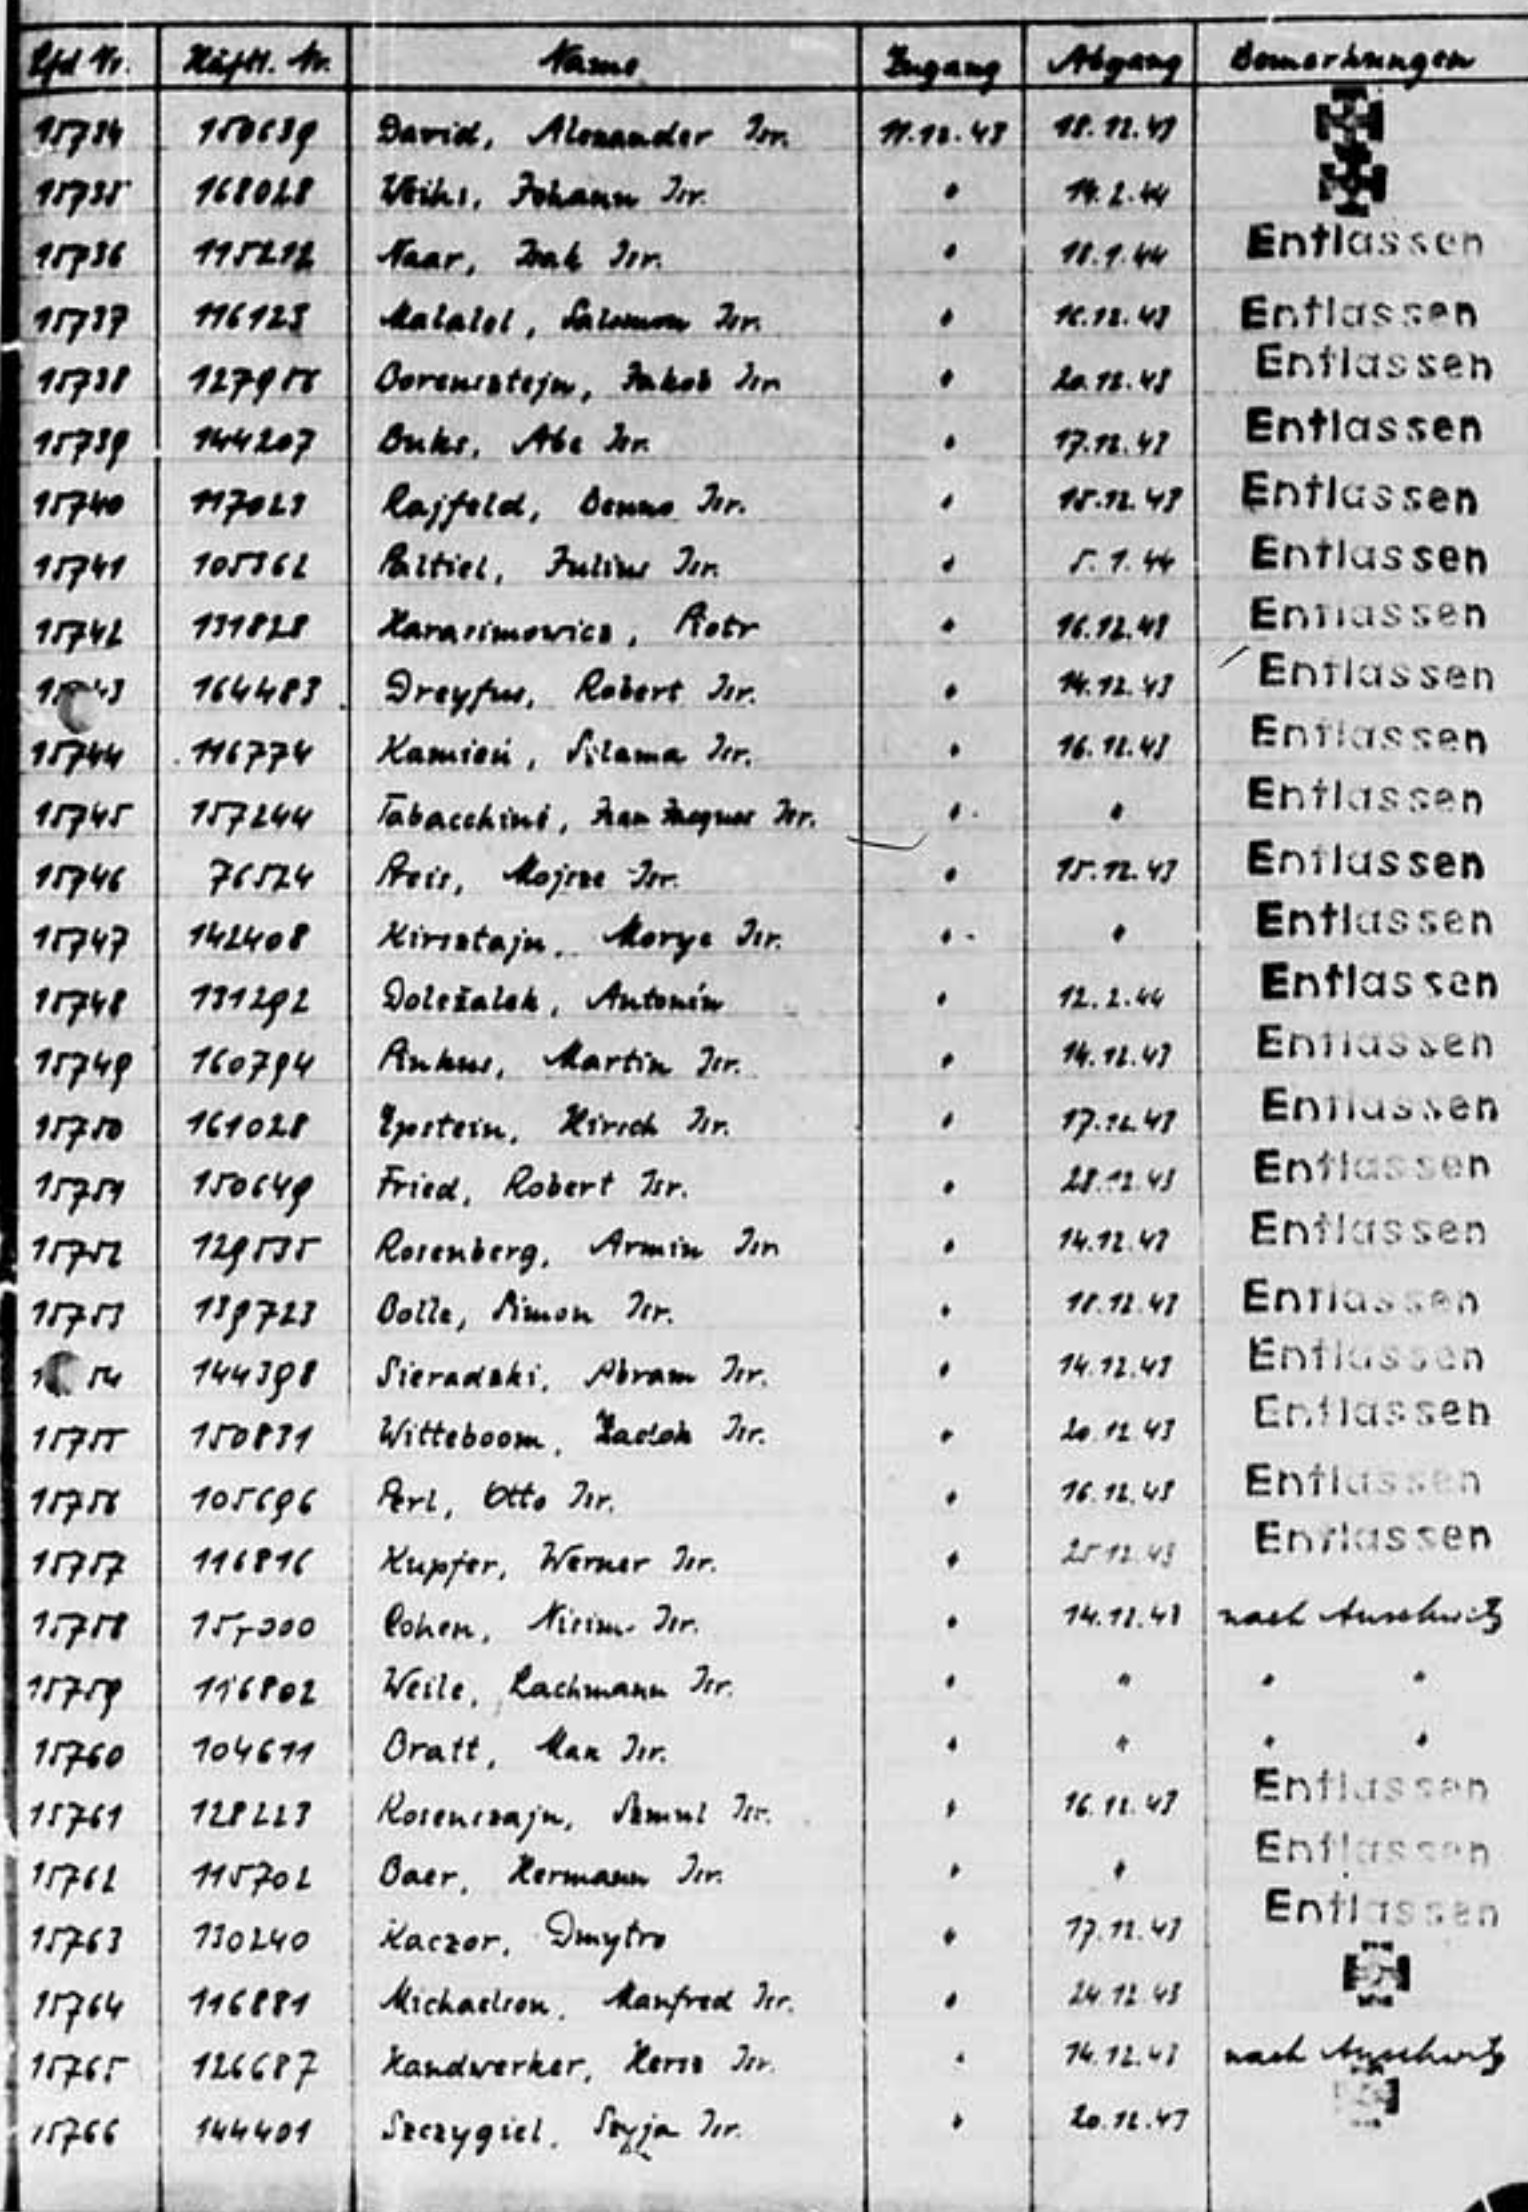 Lfd Nr. Häftl. Nr. Name Zugang Abgang Bemerkungen
15734 150639 David, Alexander Isr. 11.12.43 18.12.43
15735 168028 Weihs, Johann Isr. " 14.2.44
15736 115212 Naar, Isak Isr. " 18.1.44 Entlassen
15737 116123 Malalel, Salomon Isr. " 16.12.43 Entlassen
15738 127956 Borensztejn, Jakob Isr. " 20.12.43 Entlassen
15739 144207 Buks, Abe Isr. " 17.12.43 Entlassen
15740 117023 Rajfeld, Benno Isr. " 15.12.43 Entlassen
15741 105362 Paltiel, Julius Isr. " 5.1.44 Entlassen
15742 131828 Harasimowicz, Piotr " 16.12.43 Entlassen
43 164483 Dreyfus, Robert Isr. " 14.12.43 Entlassen
15744 116774 Kamień, Szlama Isr. " 16.12.43 Entlassen
15745 157244 Tabacchini, Jean Jacques Isr. " " Entlassen
15746 76524 Preis, Mojsze Isr. " 15.12.43 Entlassen
15747 142408 Kirsztajn, Moryc Isr. " " Entlassen
15748 131292 Doležalek, Antonín " 12.2.44 Entlassen
15749 160794 Pinkus, Martin Isr. " 14.12.43 Entlassen
15750 161028 Epstein, Hirsch Isr. " 17.12.43 Entlassen
15751 150649 Fried, Robert Isr. " 28.12.43 Entlassen
15752 129535 Rosenberg, Armin Isr. " 14.12.43 Entlassen
15753 139723 Bolle, Simon Isr. " 18.12.43 Entlassen
54 144398 Sieradzki, Abram Isr. " 14.12.43 Entlassen
15755 150831 Witteboom, Zadok Isr. " 20.12.43 Entlassen
15756 105696 Perl, Otto Isr. " 16.12.43 Entlassen
15757 116816 Kupfer, Werner Isr. " 25.12.43 Entlassen
15758 Cohen, Nissim Isr. " 14.12.43 nach Auschwitz
15759 116802 Weile, Lachmann Isr. " " " "
15760 104611 Bratt, Max Isr. " " " "
15761 128223 Rosenszajn, Szmul Isr. " 16.12.43 Entlassen
15762 115702 Baer, Hermann Isr. " " Entlassen
15763 130240 Kaczor, Dmytro " 17.12.43 Entlassen
15764 116881 Michaelson, Manfred Isr. " 24.12.43
15765 126687 Handwerker, Hersz Isr. " 14.12.43 nach Auschwitz
15766 144401 Szczygiel, Szyja Isr. " 20.12.43